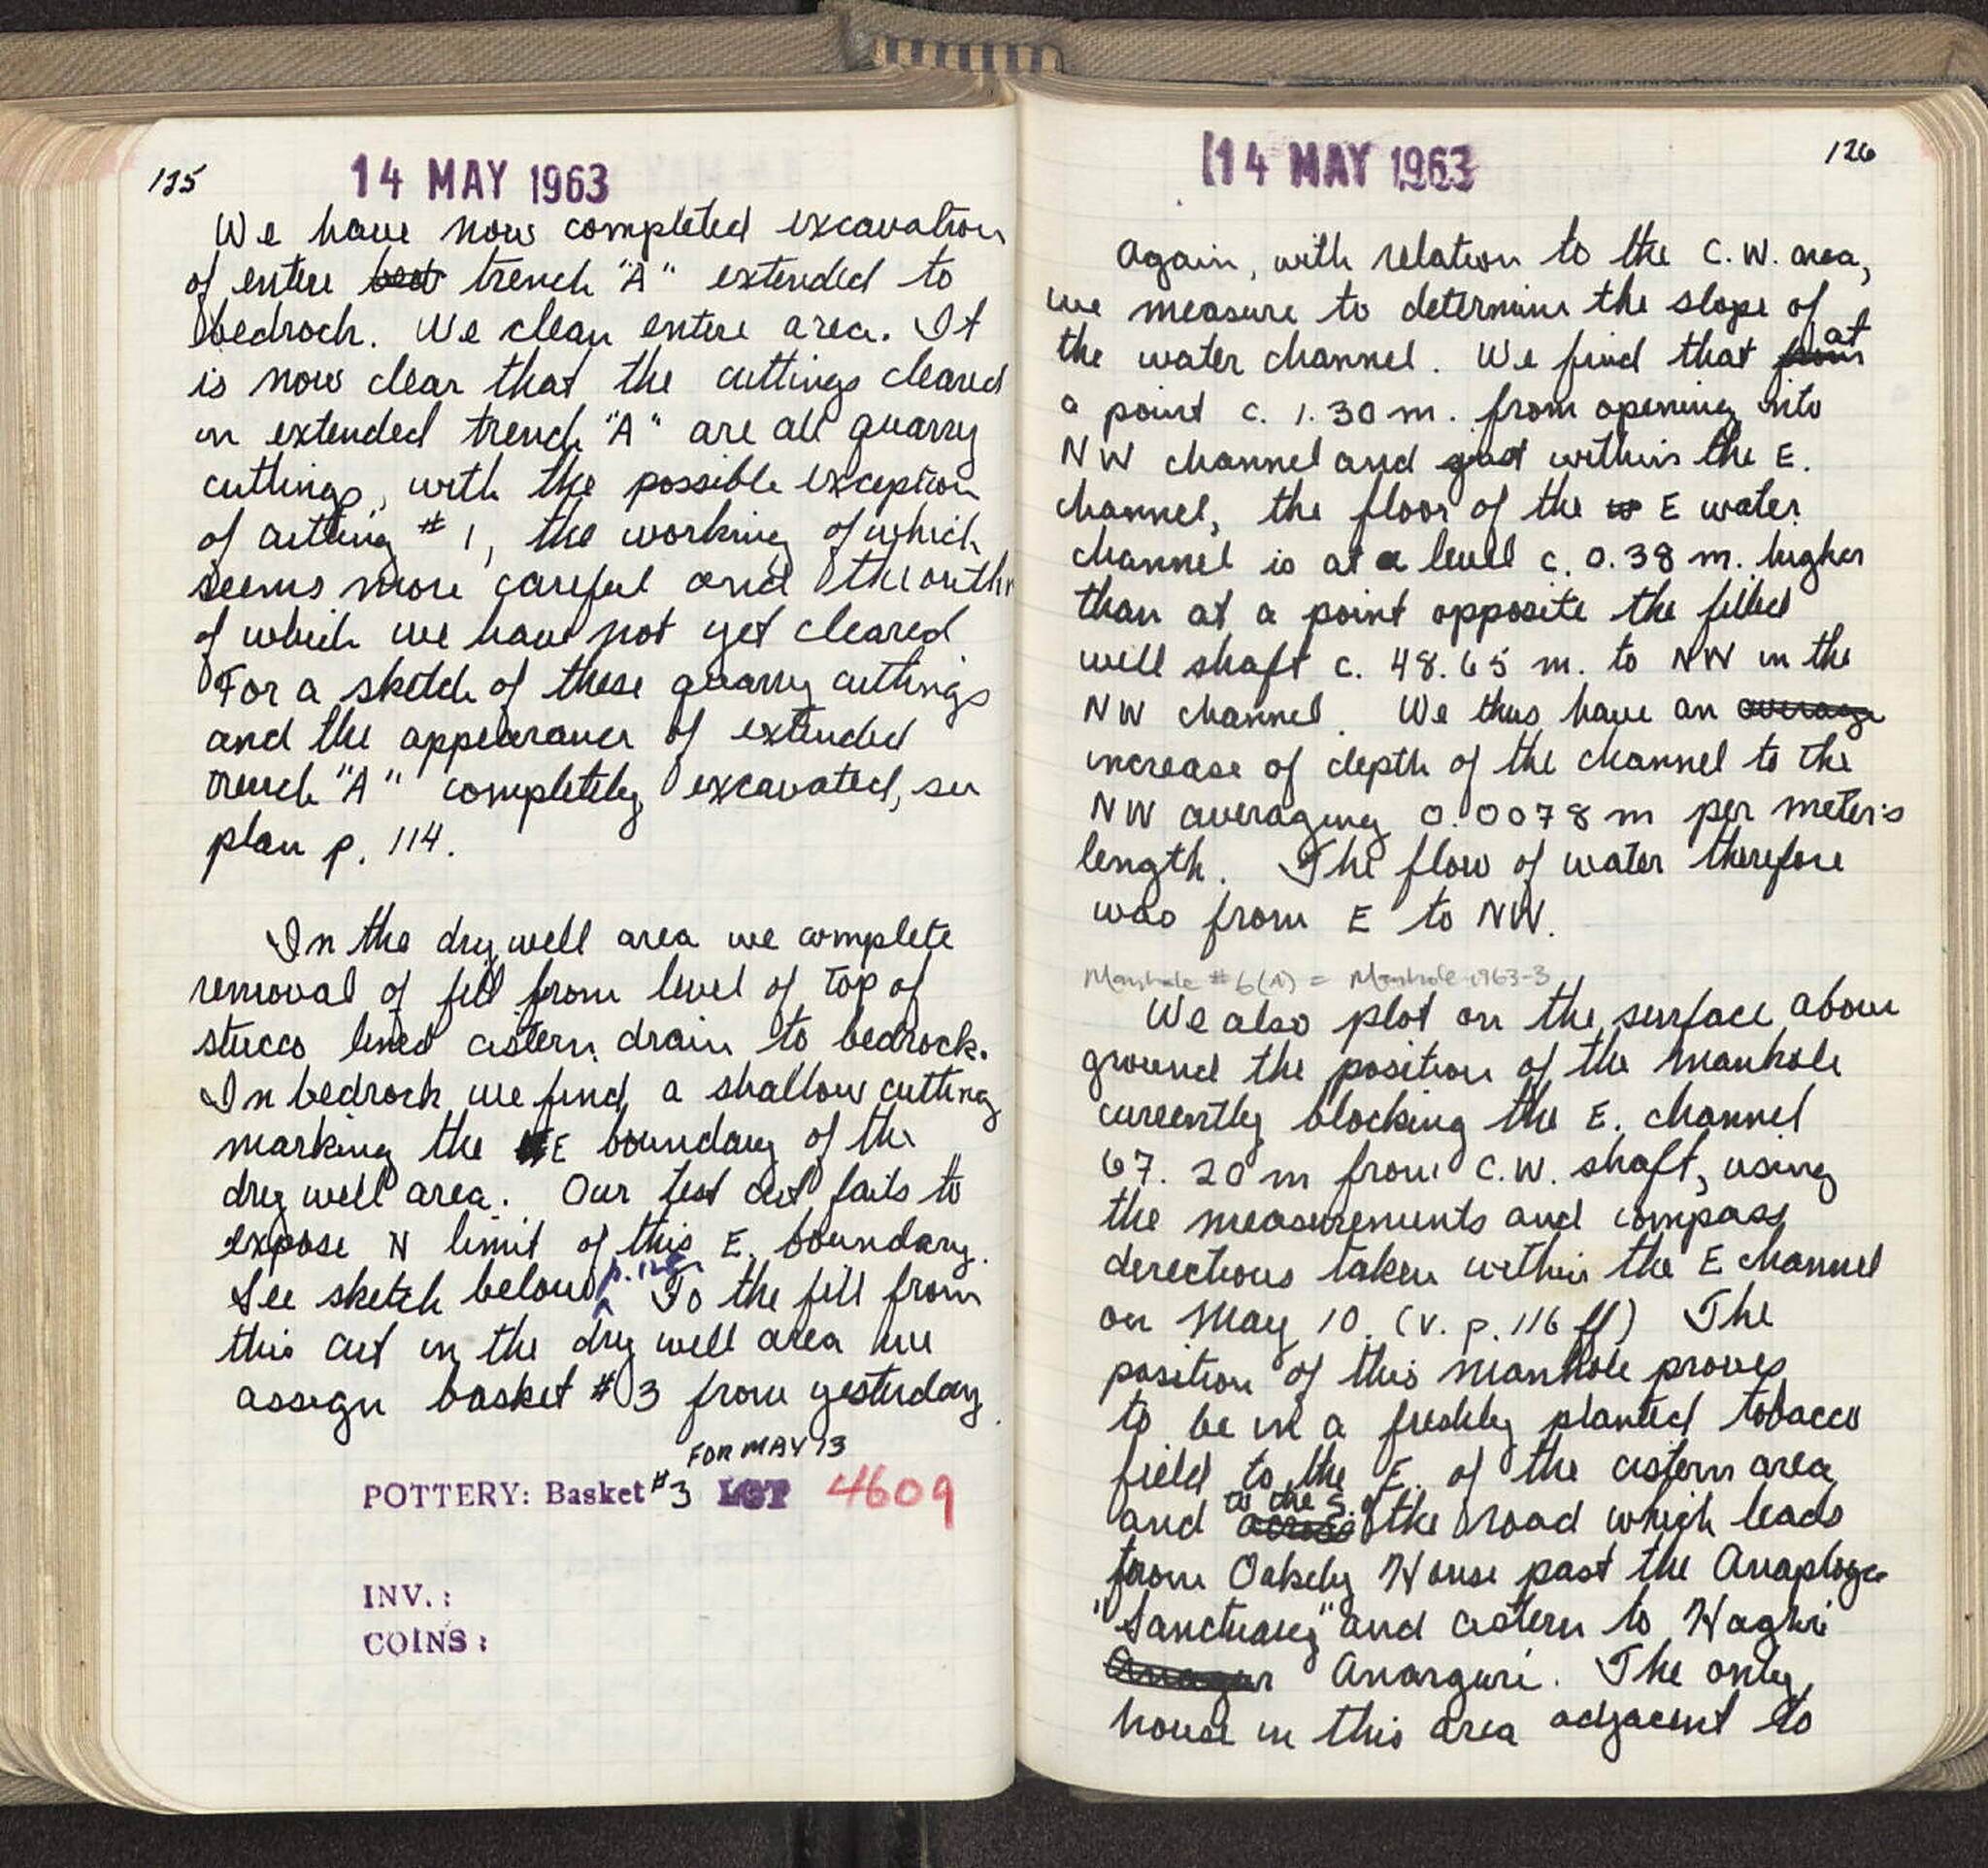 125
14 MAY 1963
We have now completed excavation
of entire trench "A" extended to
bedrock. We clean entire area. It
is now clear that the cuttings cleared
in extended trench "A" are all quarry
cuttings, with the possible exception
of cutting #1, the working of which
seems more careful and the outline
of which we have not yet cleared.
For a sketch of these quarry cuttings
and the appearance of extended
trench "A" completely excavated, see
plan p. 114.
In the dry well area we complete
removal of fill from level of top of
stucco lined cistern drain to bedrock.
In bedrock we find a shallow cutting
marking the E boundary of the
dry well area. Our test cut fails to
expose N limit of this E. boundary.
See sketch below p. 128. To the fill from
this cut in the dry well area we
assign basket #3 from yesterday.
FOR MAY 13
POTTERY: Basket #3 LOT 4609
INV.:
COINS:
14 MAY 1963
126
Again, with relation to the C.W. area,
we measure to determine the slope of
the water channel. We find that from at
a point c. 1.30 m. from opening into
NW channel and just within the E.
channel, the floor of the E water
channel is at a level c. 0.38 m. higher
than at a point opposite the filled
well shaft c. 48.65 m. to NW in the
NW channel. We thus have an average
increase of depth of the channel to the
NW averaging 0.0078 m per meter's
length. The flow of water therefore
was from E to NW.
Manhole #6(A) = Manhole 1963-3
We also plot on the surface above
ground the position of the manhole
currently blocking the E. channel
67.20 m from C.W. shaft, using
the measurements and compass
directions taken within the E channel
on May 10. (v. p. 116 ff) The
position of this manhole proves
to be in a freshly planted tobacco
field to the E. of the cistern area
and across to the S. of the road which leads
from Oakeley House past the Anaploga
"Sanctuary" and cistern to Hagioi
Anarguri. The only
house in this area adjacent to